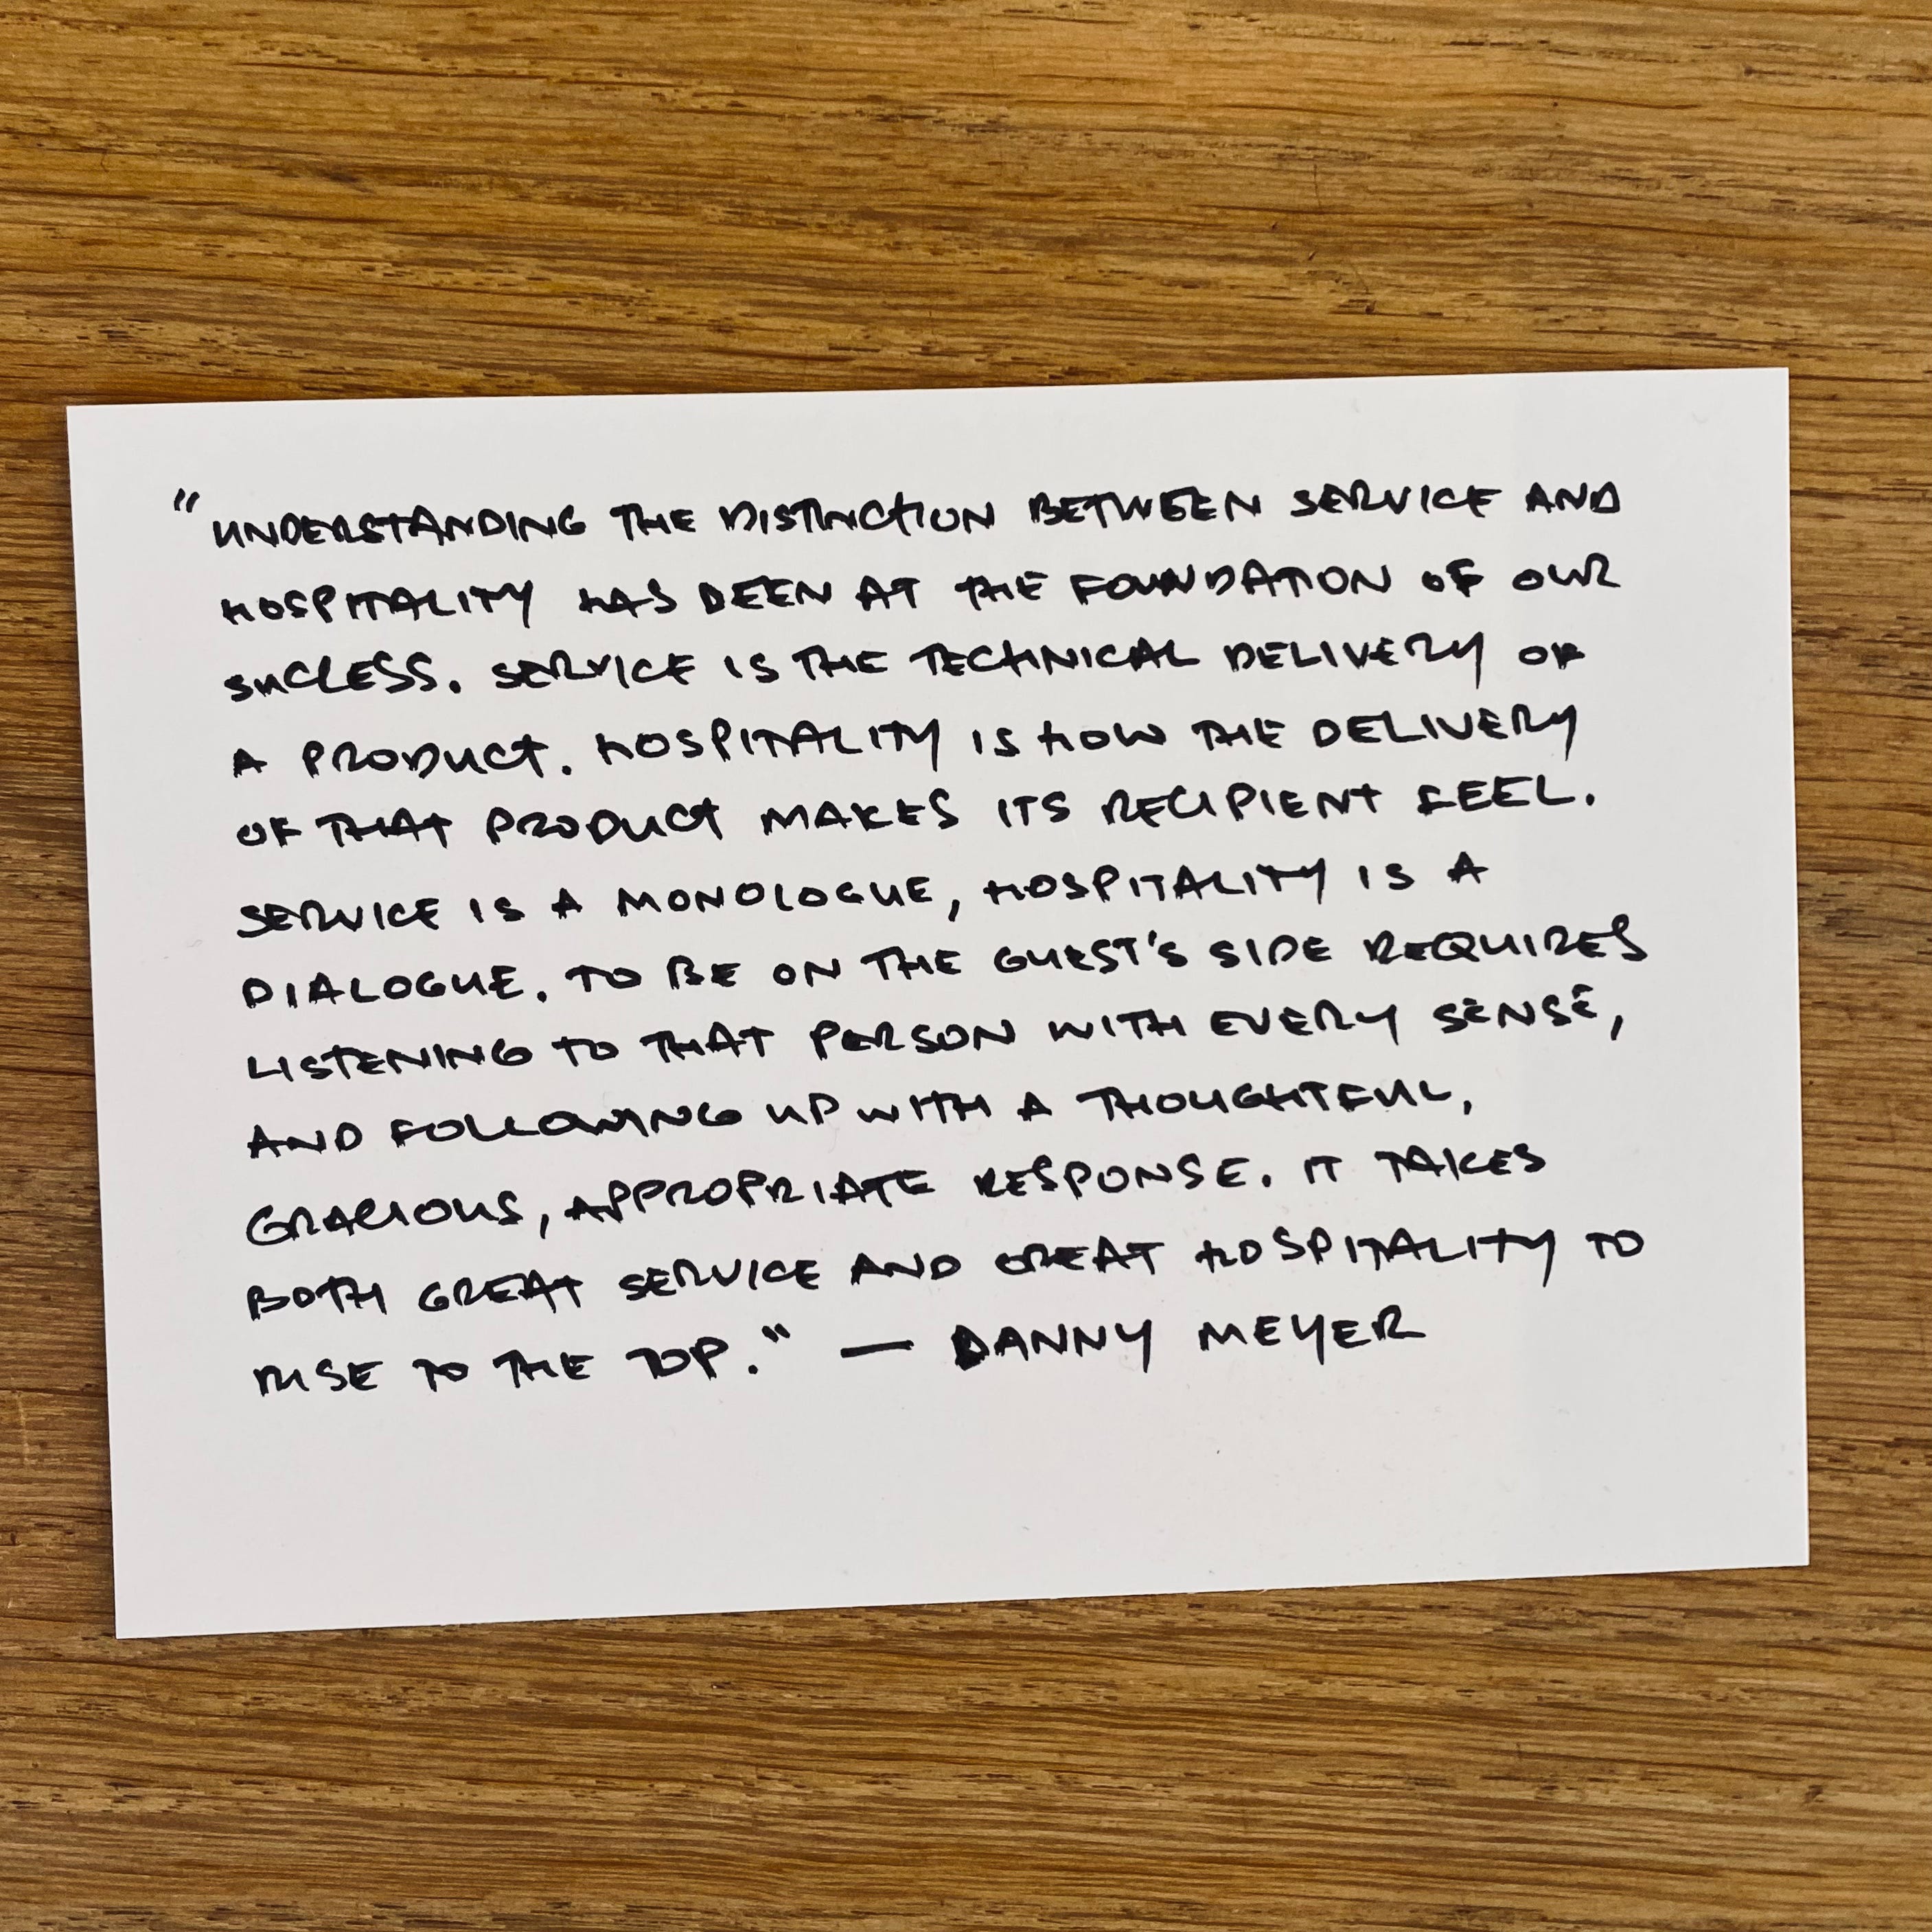 "UNDERSTANDING THE DISTINCTION BETWEEN SERVICE AND
HOSPITALITY HAS BEEN AT THE FOUNDATION OF OUR
SUCCESS. SERVICE IS THE TECHNICAL DELIVERY OF
A PRODUCT. HOSPITALITY IS HOW THE DELIVERY
OF THAT PRODUCT MAKES ITS RECIPIENT FEEL.
SERVICE IS A MONOLOGUE, HOSPITALITY IS A
DIALOGUE. TO BE ON THE GUEST'S SIDE REQUIRES
LISTENING TO THAT PERSON WITH EVERY SENSE,
AND FOLLOWING UP WITH A THOUGHTFUL,
GRACIOUS, APPROPRIATE RESPONSE. IT TAKES
BOTH GREAT SERVICE AND GREAT HOSPITALITY TO
RISE TO THE TOP." — DANNY MEYER